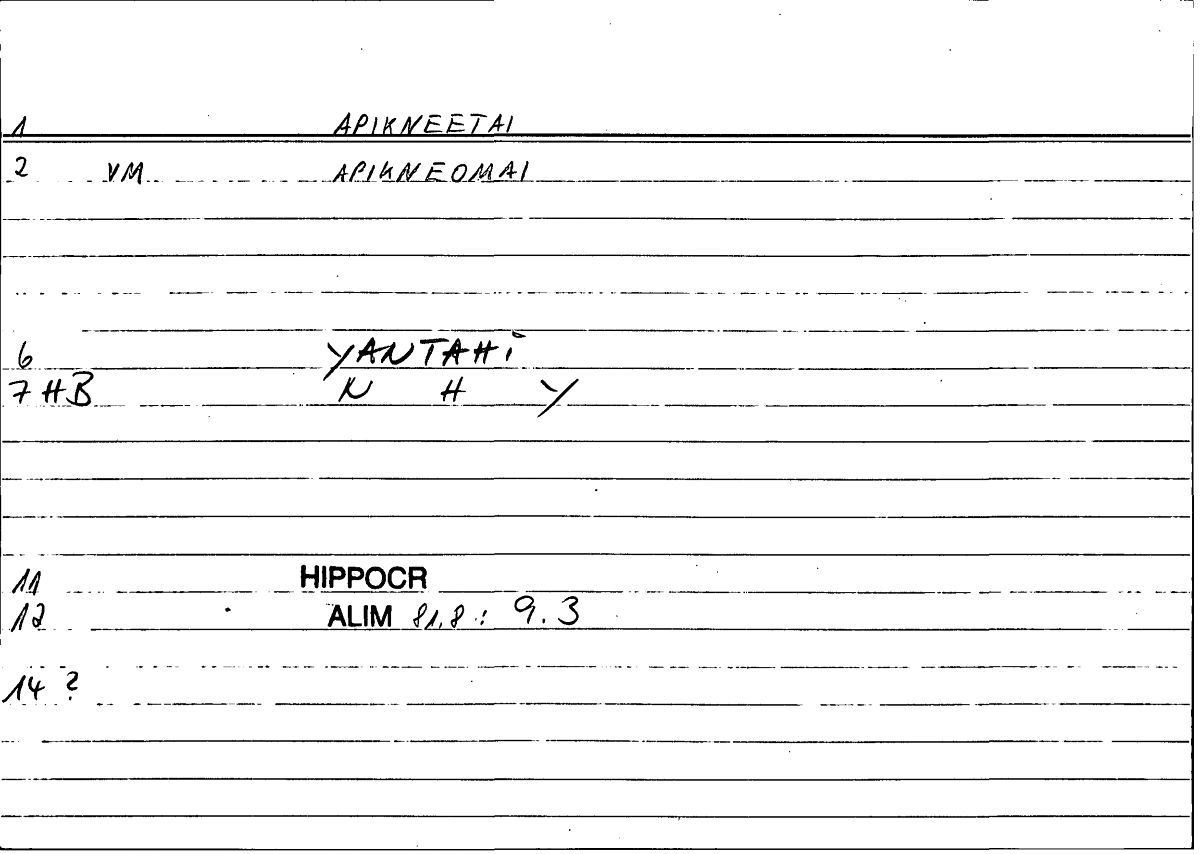 1 APIKNEETAI
2 VM APIKNEOMAI
6 YANTAHI
7 HB N H Y
11 HIPPOCR
12 ALIM 81,8: 9.3
14 ?